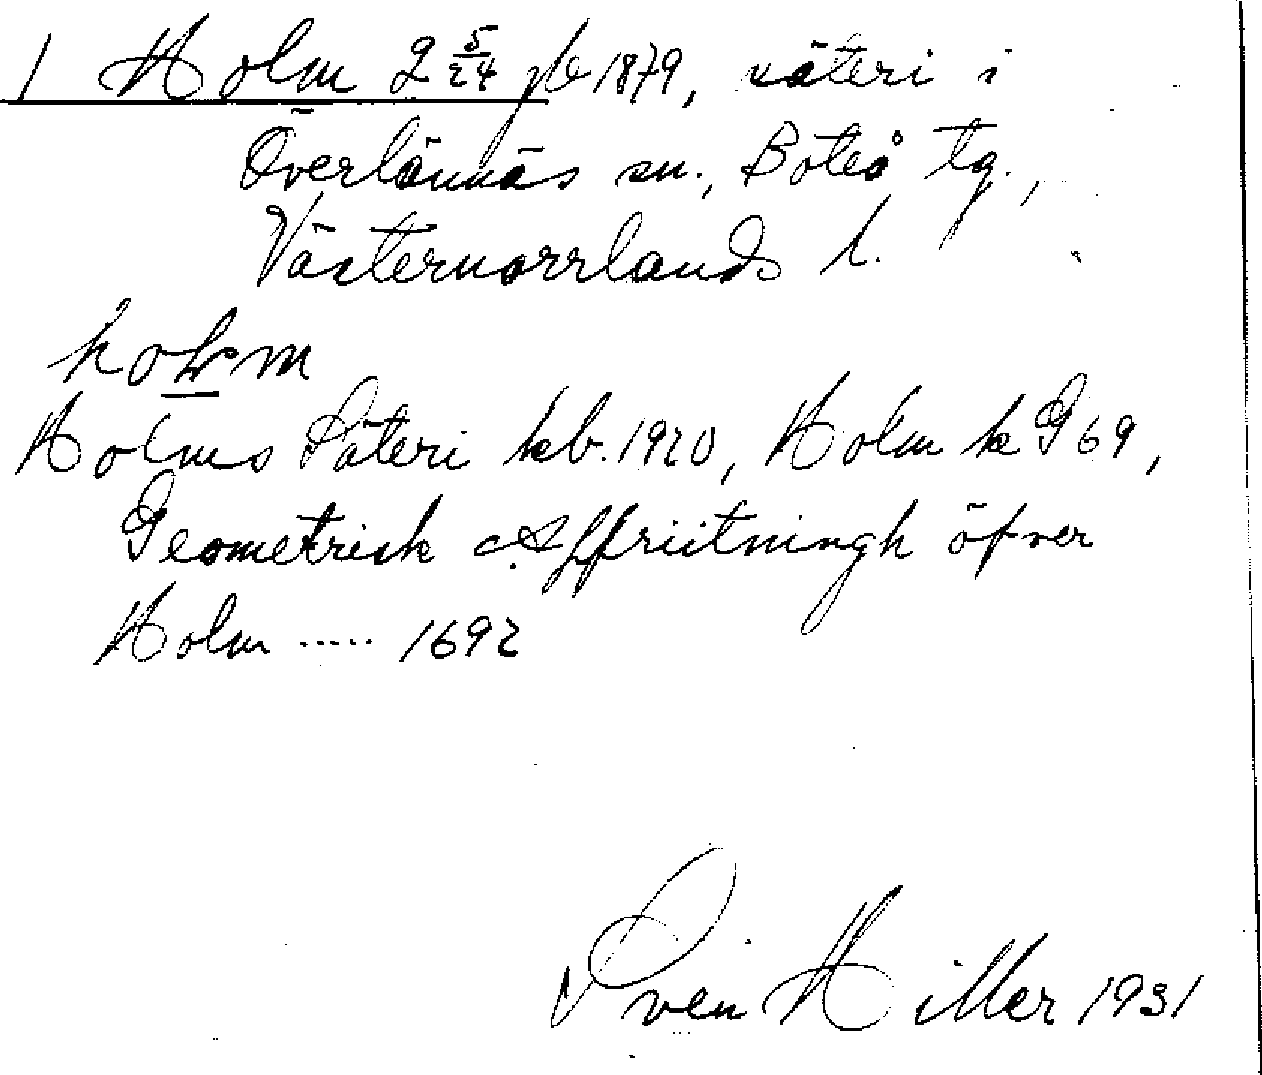 1 Holm 2 5/24 jb 1879, säteri i
Överlännäs sn., Boteå tg.,
Västernorrlands l.
hoḷm
Holms Säteri kb. 1920, Holm k G 69,
Geometrisk Affriitningh öfver
Holm ..... 1692
Sven Hiller 1931